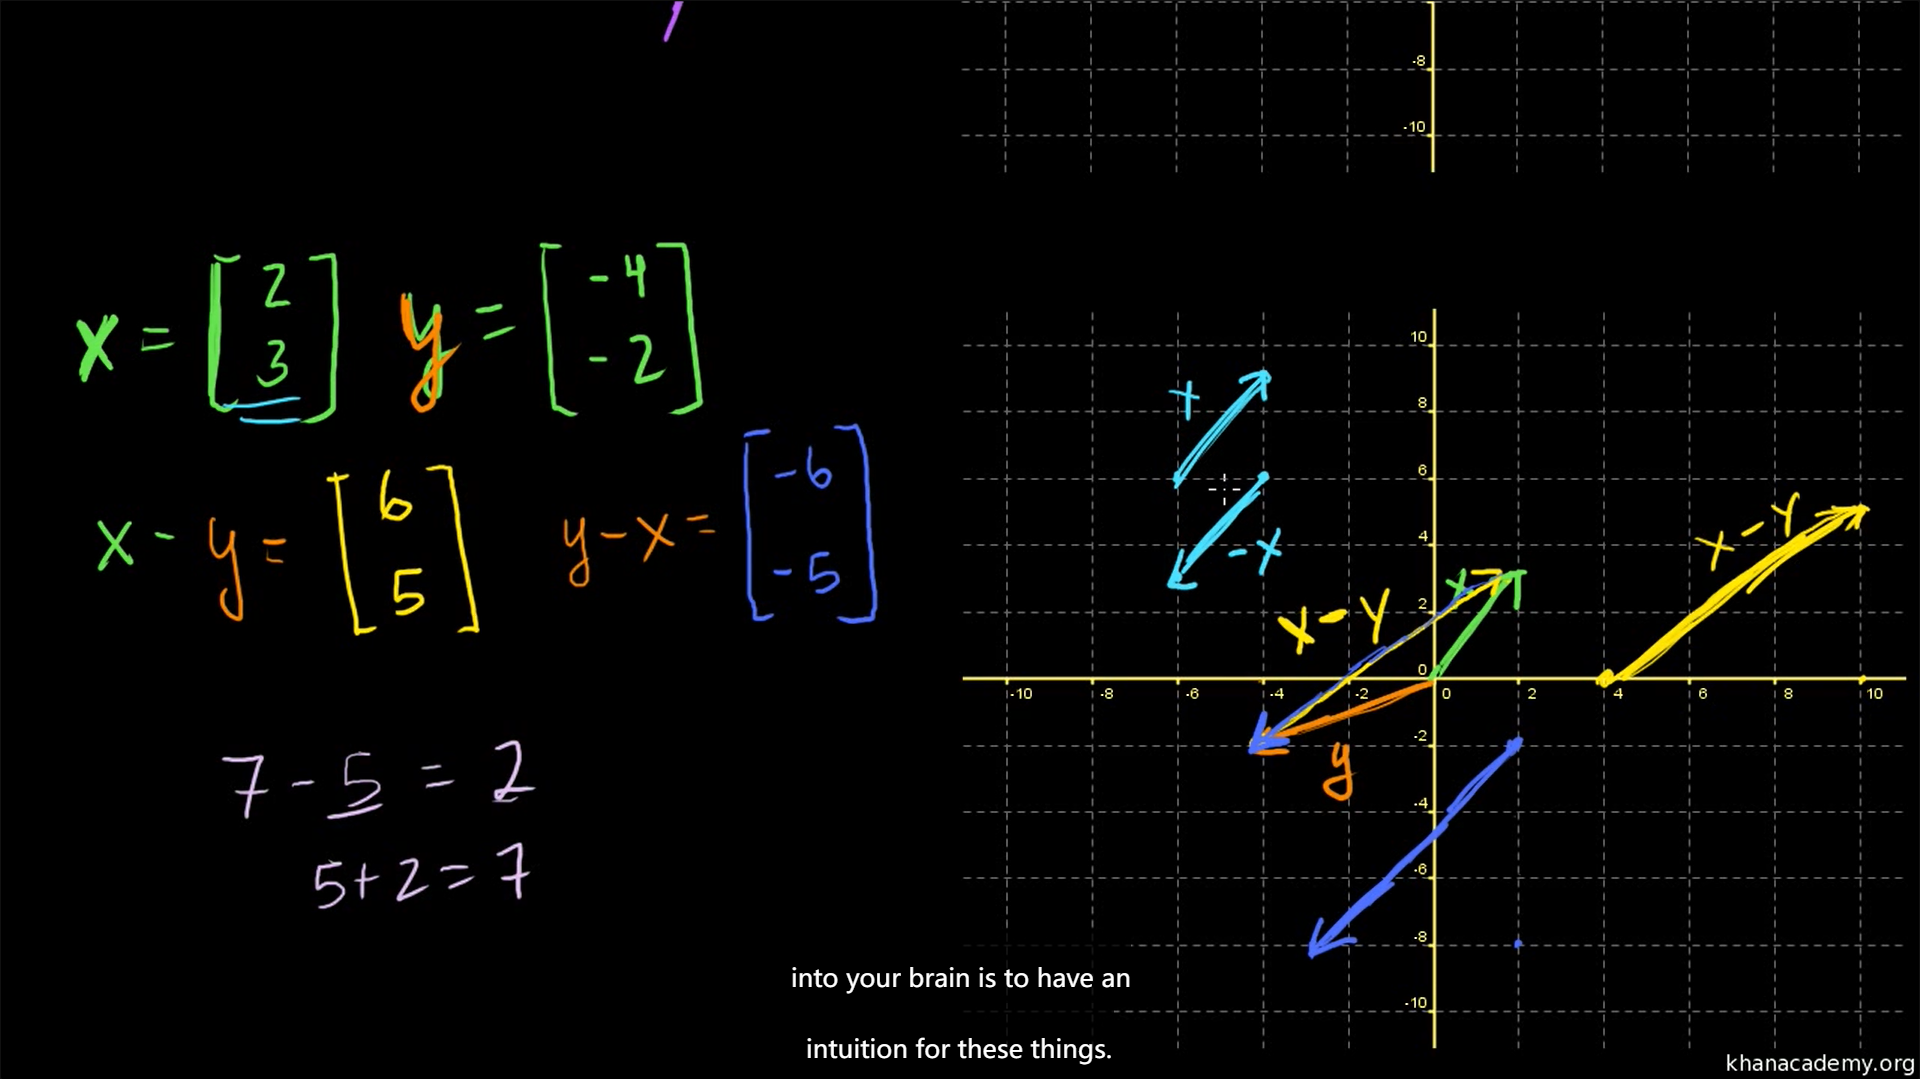 -8
-10
x = [2 3] y = [-4 -2]
x - y = [6 5] y - x = [-6 -5]
7 - 5 = 2
5 + 2 = 7
10
8
6
4
2
0
-2
-4
-6
-8
-10
-10 -8 -6 -4 -2 0 2 4 6 8 10
x
-x
x - y
x
y
x - y
into your brain is to have an
intuition for these things.
khanacademy.org